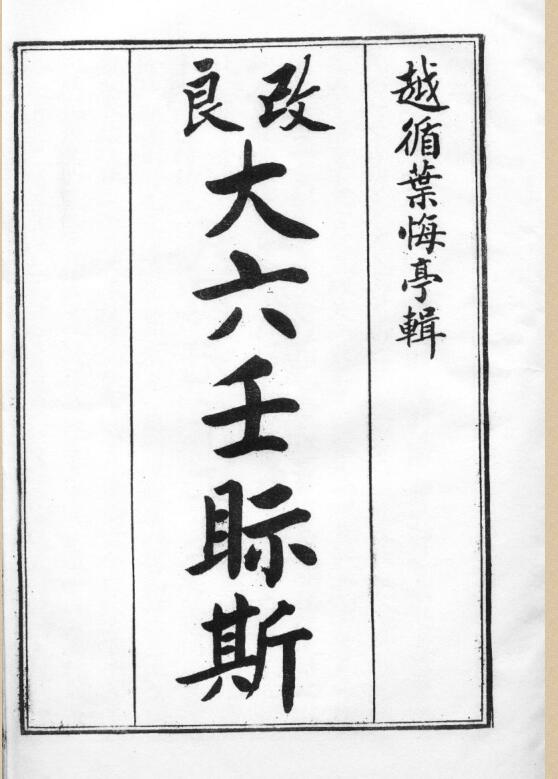 越循葉悔亭輯
改良
大六壬眎斯